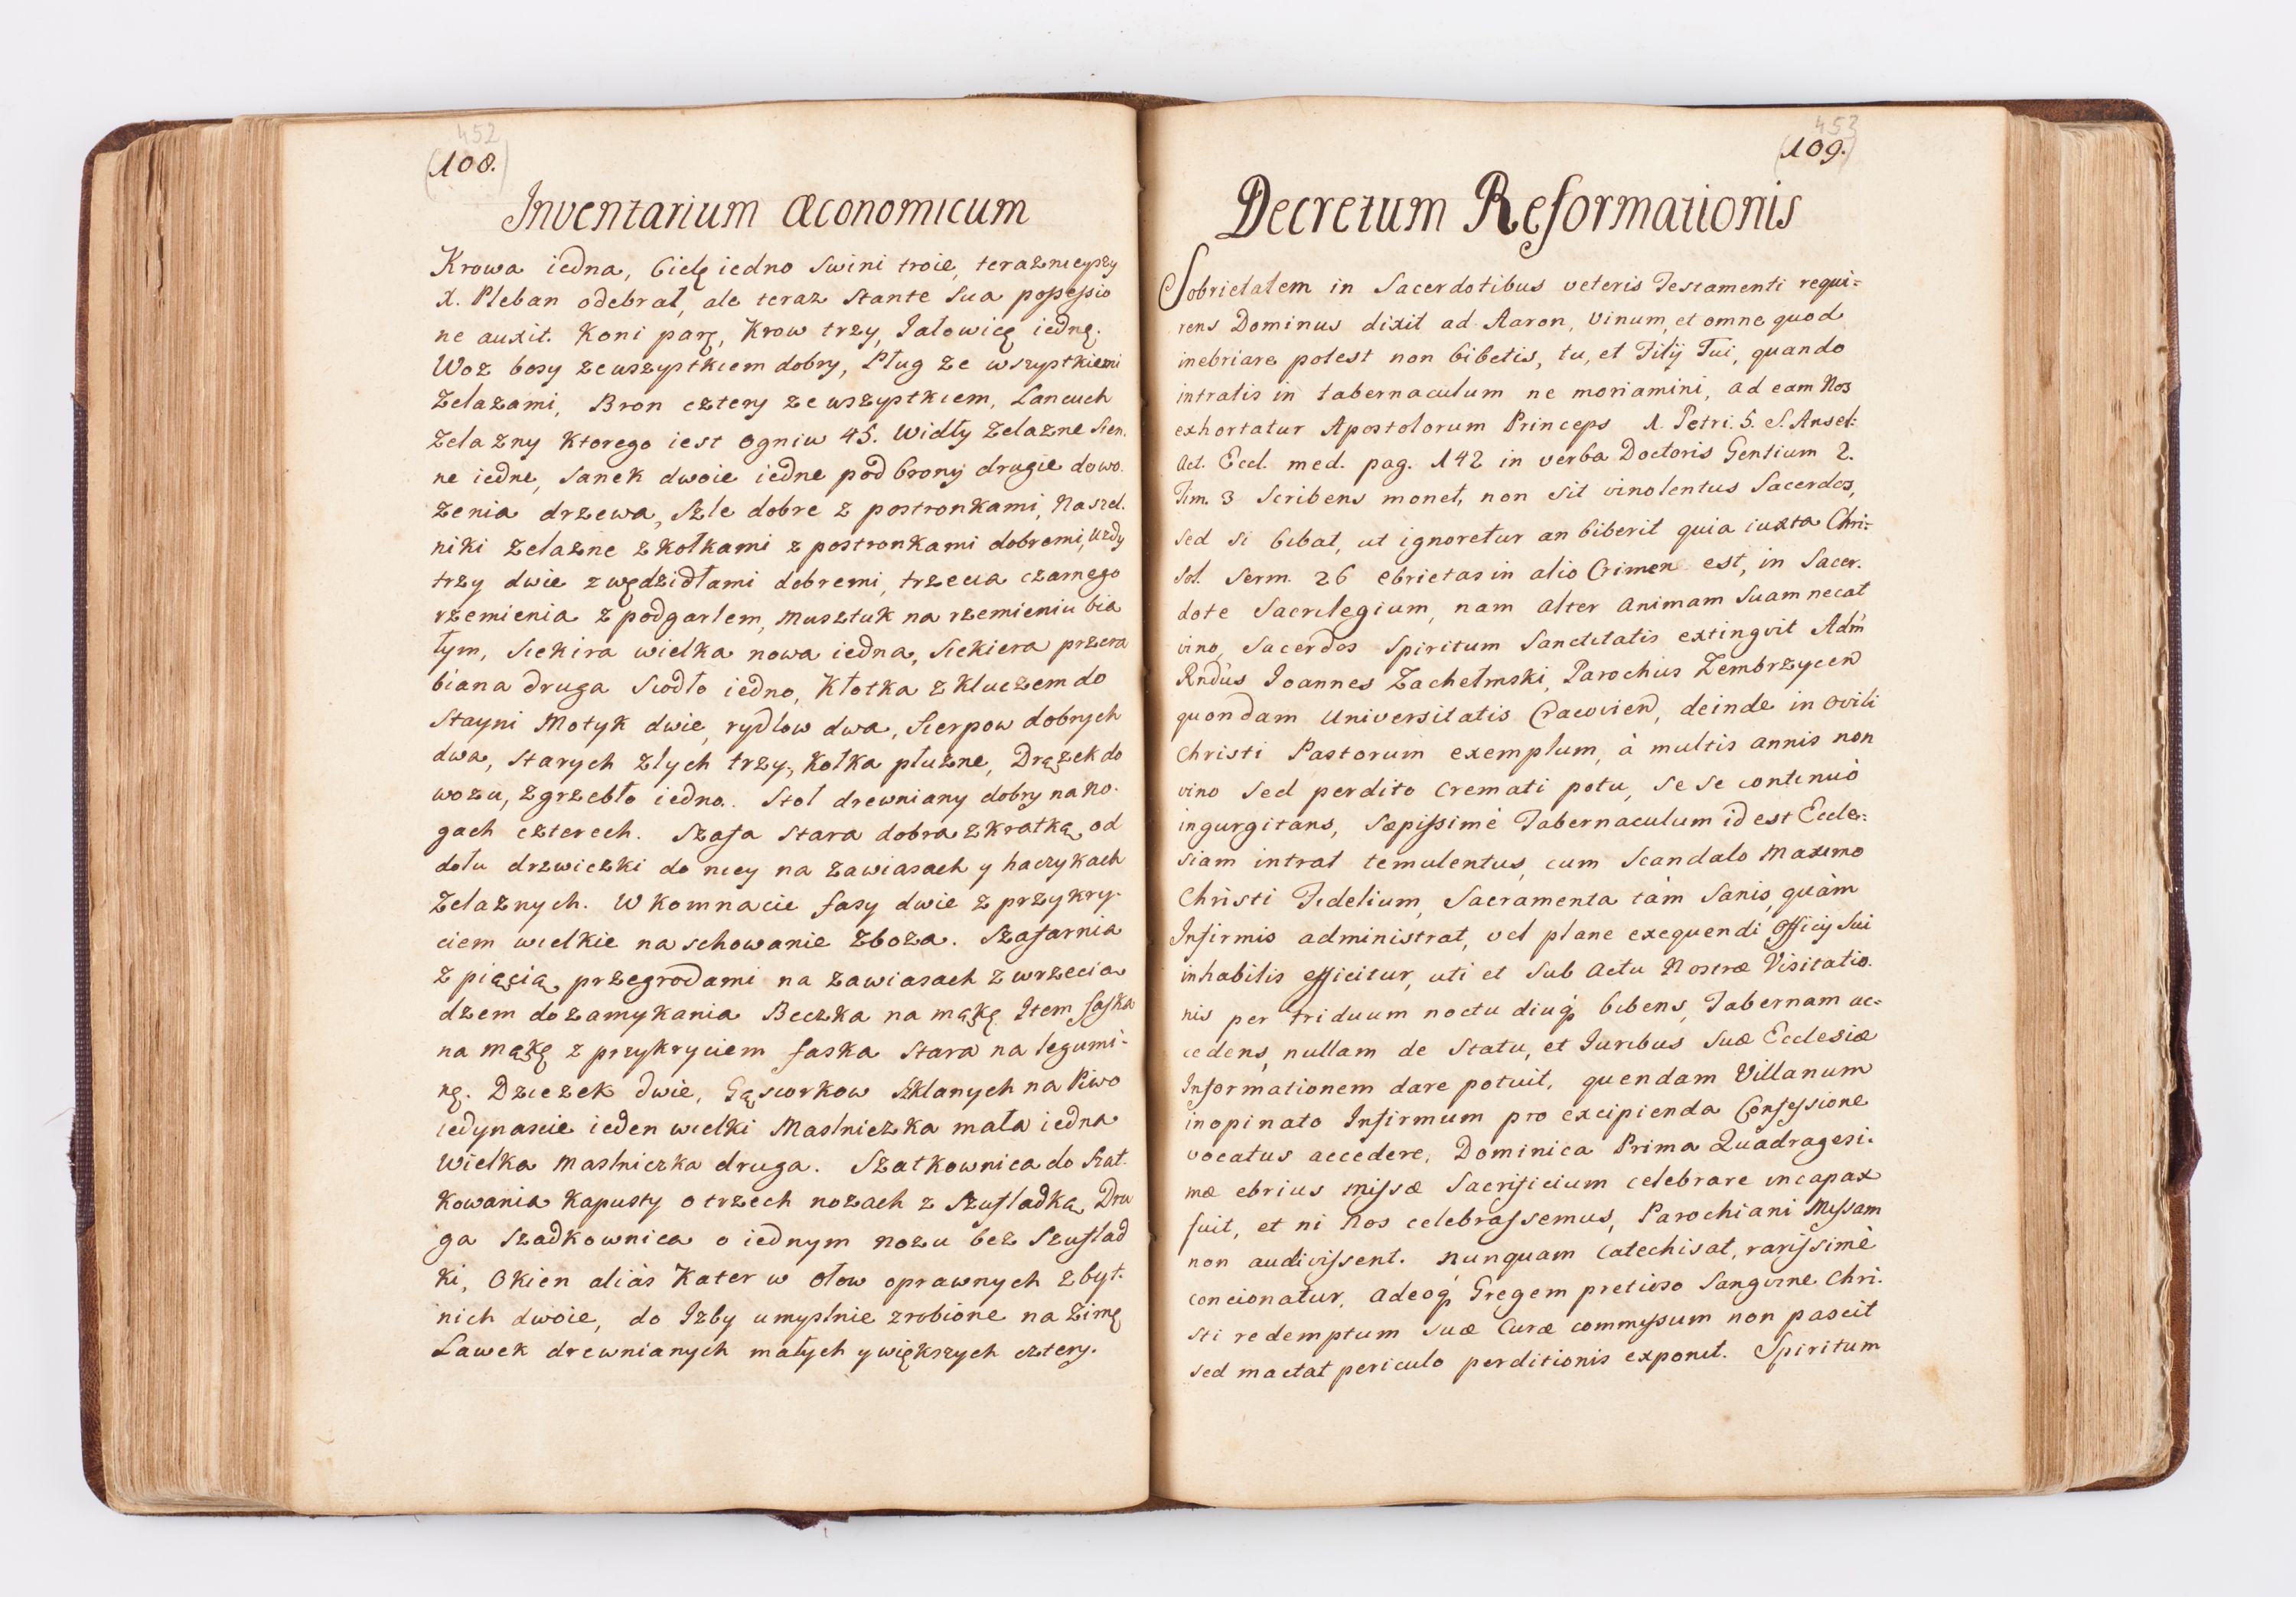 452
(108.)
Inventarium Œconomicum
Krowa iedna, Cielę iedno Swini troie, teraznieyszy
X. Pleban odebrał, ale teraz Stante Sua possessio
ne auxit. Koni parę, Krow trzy, Jałowicę iednę.
Woz bosy zewszystkiem dobry, Pług ze wszystkiemi
Zelazami, Bron cztery zewszystkiem, Lancuch
Zelazny Ktorego iest ogniw 45. Widły Zelazne Sien.
ne iedne, Sanek dwoie iedne pod brony drugie dowo.
zenia drzewa, Szle dobre z postronkami, Naszel.
niki Zelazne z Kołkami z postronkami dobremi, Uzdy
trzy dwie z wędzidłami dobremi, trzecia czarnego
rzemienia z podgarlem, Musztuk na rzemieniu bia
łym, Siekira wielka nowa iedna, Siekiera przera
biana druga Siodło iedno, Kłotka z Kluczem do
Stayni Motyk dwie, rydlow dwa, Sierpow dobrych
dwa, Starych złych trzy, Kołka płuzne, Drązek do
wozu, Zgrzebło iedno. Stoł drewniany dobry na No.
gach czterech. Szafa Stara dobra z kratką, od
dołu drzwiczki do niey na zawiasach y haczykach
Zelaznych. W Komnacie fasy dwie z przykry.
ciem wielkie na schowanie Zboza. Szafarnia
z pięcią przegrodami na zawiasach z wrzecią
dzem do zamykania Beczka na mąkę. Item faska
na mąkę z przykryciem faska Stara na legumi-
nę. Dziezek dwie, Gąsiorkow Szklanych na Piwo
iedynascie ieden wielki Maslniczka mała iedna
Wielka Maslniczka druga. Szatkownica do Szat.
kowania Kapusty o trzech nozach z Szufladką, Dru
ga Szadkownica o iednym nozu bez Szuflad
ki, Okien aliàs Kater w ołow oprawnych zbyt.
nich dwoie, do Izby umyslnie zrobione na Zimę
Lawek drewnianych małych y większych cztery.
453
(109.)
Decretum Reformationis
Sobrietatem in Sacerdotibus veteris Testamenti requi=
rens Dominus dixit ad Aaron, Vinum, et omne quod
inebriare potest non bibetis, tu, et Filij Tui, quando
intratis in tabernaculum ne moriamini, ad eam Nos
exhortatur Apostolorum Princeps 1. Petri. 5. S. Ansel:
Act. Eccl. med. pag. 142 in verba Doctoris Gentium 2.
Tim. 3 Scribens monet, non sit vinolentus Sacerdos,
sed si bibat, ut ignoretur an biberit quia iuxta Chri=
sol. Serm. 26 ebrietas in alio Crimen est, in Sacer.
dote Sacrilegium, nam alter animam Suam necat
vino, Sacerdos Spiritum Sanctitatis extingvit Adm
Rndus Ioannes Zachełmski, Parochus Zembrzycen
quondam Universitatis Cracovien, deinde in ovili
Christi Pastorum exemplum, à multis annis non
vino sed perdito cremati potu, se se continuò
ingurgitans, Sæpissimè Tabernaculum id est Eccle=
siam intrat temulentus, cum Scandalo Maximo
Christi Fidelium, Sacramenta tàm Sanis, quàm
Infirmis administrat, vel plane exequendi Officij Sui
inhabilis efficitur, uti et Sub Actu Nostræ Visitatio.
nis per triduum noctu diuq bibens, Tabernam ac=
cedens, nullam de Statu, et Iuribus Suæ Ecclesiæ
Informationem dare potuit, quendam Villanum
inopinato Infirmum pro excipienda Confessione
vocatus accedere, Dominica Prima Quadragesi.
mæ ebrius Missæ Sacrificium celebrare incapax
fuit, et ni Nos celebrassemus, Parochiani Missam
non audivissent. Nunquam Catechisat, rarissimè
concionatur, adeoq Gregem pretioso Sangvine Chri.
sti redemptum suæ Curæ commissum non pascit
sed mactat periculo perditionis exponit. Spiritum